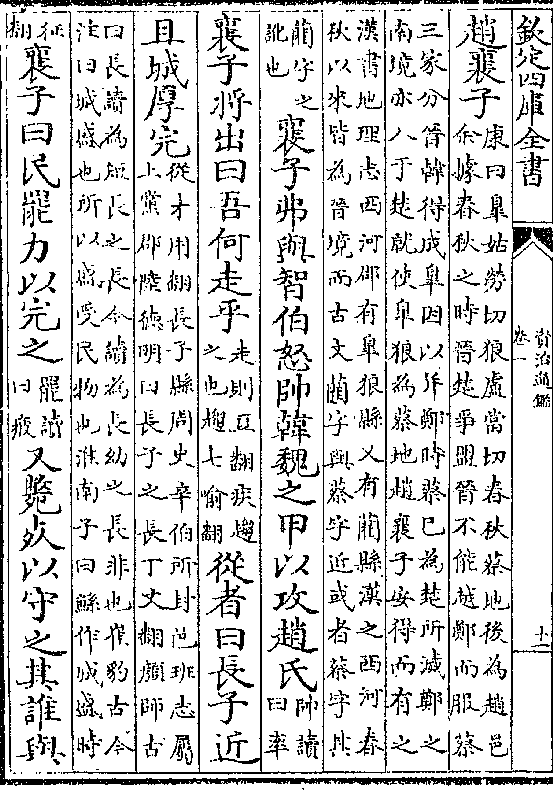 欽定四庫全書
資治通鑑
卷一
十一
趙襄子
康曰臯姑勞切狼盧當切春秋蔡地後為趙邑
余據春秋之時晉楚爭盟晉不能越鄭而服蔡
三家分晉韓得成臯因以并鄭時蔡已為楚所滅鄭之
南境亦入于楚就使臯狼為蔡地趙襄子安得而有之
漢書地理志西河郡有臯狼縣又有藺縣漢之西河春
秋以來皆為晉境而古文藺字與蔡字近或者蔡字其
藺字之
訛也
襄子弗與智伯怒帥韓魏之甲以攻趙氏
帥讀
曰率
襄子將出曰吾何走乎
走則豆翻疾趨
之也趨七喻翻
從者曰長子近
且城厚完
從才用翻長子縣周史辛伯所封邑班志屬
上黨郡陸徳明曰長子之長丁丈翻顔師古
曰長讀為短長之長今讀為長幼之長非也崔豹古今
注曰城盛也所以盛受民物也淮南子曰鯀作城盛時
征
翻
襄子曰民罷力以完之
罷讀
曰疲
又斃死以守之其誰與